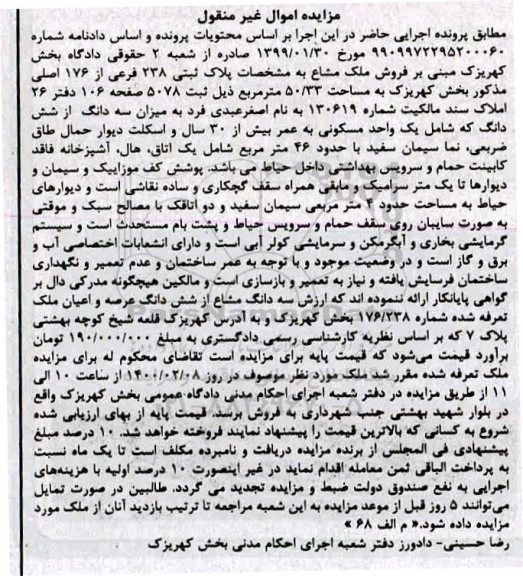 مزایده اموال غیر منقول
مطابق پرونده اجرایی حاضر در این اجرا بر اساس محتویات پرونده و اساس دادنامه شماره
۹۹۰۹۹۷۲۲۹۵۲۰۰۰۶۰ مورخ ۱۳۹۹/۰۱/۳۰ صادره از شعبه ۲ حقوقی دادگاه بخش
کهریزک مبنی بر فروش ملک مشاع به مشخصات پلاک ثبتی ۲۳۸ فرعی از ۱۷۶ اصلی
مذکور بخش کهریزک به مساحت ۵۰/۳۳ مترمربع ذیل ثبت ۵۰۷۸ صفحه ۱۰۶ دفتر ۲۶
املاک سند مالکیت شماره ۱۳۰۶۱۹ به نام اصغرعبدی فرد به میزان سه دانگ از شش
دانگ که شامل یک واحد مسکونی به عمر بیش از ۳۰ سال و اسکلت دیوار حمال طاق
ضربعی، نما سیمان سفید با حدود ۴۶ متر مربع شامل یک اتاق، هال، آشپزخانه فاقد
کابینت حمام و سرویس بهداشتی داخل حیاط می باشد. پوشش کف موزاییک و سیمان و
دیوارها تا یک متر سرامیک و مابقی همراه سقف گچکاری و ساده نقاشی است و دیوارهای
حیاط به مساحت حدود ۴ متر مربعی سیمان سفید و دو اتاقک با مصالح سبک و موقتی
به صورت سایبان روی سقف حمام و سرویس حیاط و پشت بام مستحدث است و سیستم
گرمایشی بخاری و آبگرمکن و سرمایشی کولر آبی است و دارای انشعابات اختصاصی آب و
برق و گاز است و در وضعیت موجود و با توجه به عمر ساختمان و عدم تعمیر و نگهداری
ساختمان فرسایش یافته و نیاز به تعمیر و بازسازی است و مالکین هیچگونه مدرکی دال بر
گواهی پایانکار ارائه ننموده اند که ارزش سه دانگ مشاع از شش دانگ عرصه و اعیان ملک
تعرفه شده شماره ۱۷۶/۲۳۸ بخش کهریزک و به آدرس کهریزک قلعه شیخ کوچه بهشتی
پلاک ۷ که بر اساس نظریه کارشناسی رسمی دادگستری به مبلغ ۱۹۰/۰۰۰/۰۰۰ تومان
برآورد قیمت می‌شود که قیمت پایه برای مزایده است تقاضای محکوم له برای مزایده
ملک تعرفه شده مقرر شد ملک مورد نظر موصوف در روز ۱۴۰۰/۰۲/۰۸ از ساعت ۱۰ الی
۱۱ از طریق مزایده در دفتر شعبه اجرای احکام مدنی دادگاه عمومی بخش کهریزک واقع
در بلوار شهید بهشتی جنب شهرداری به فروش برسد قیمت پایه از بهای ارزیابی شده
شروع به کسانی که بالاترین قیمت را پیشنهاد نمایند فروخته خواهد شد. ۱۰ درصد مبلغ
پیشنهادی فی المجلس از برنده مزایده دریافت و نامبرده مکلف است تا یک ماه نسبت
به پرداخت الباقی ثمن معامله اقدام نماید در غیر اینصورت ۱۰ درصد اولیه با هزینه‌های
اجرایی به نفع صندوق دولت ضبط و مزایده تجدید می گردد. طالبین در صورت تمایل
می‌توانند ۵ روز قبل از موعد مزایده به این شعبه مراجعه تا ترتیب بازدید آنان از ملک مورد
مزایده داده شود.« م الف ۶۸ »
رضا حسینی- دادورز دفتر شعبه اجرای احکام مدنی بخش کهریزک